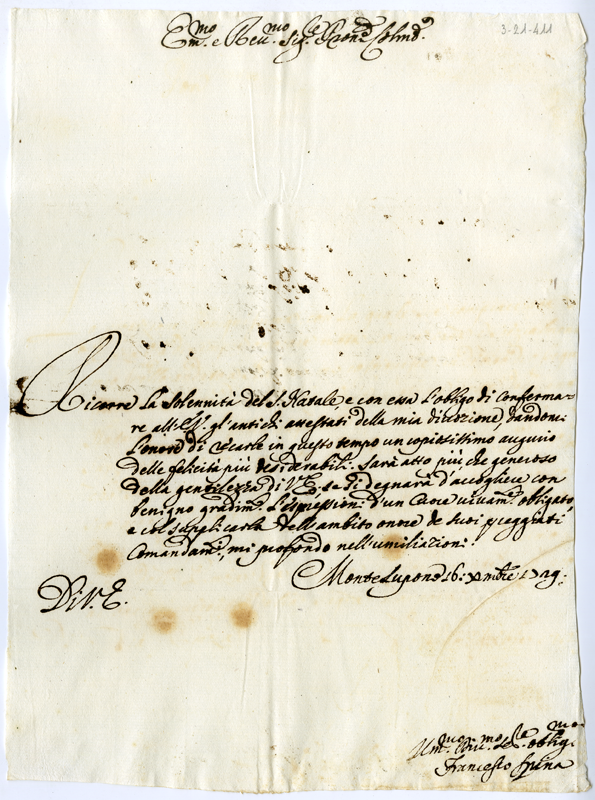 3-21-411
Em.mo e Rev.mo Sig.re P.rone Colmo.
Ricorre la Solennità del S. Natale, e con essa l'obligo di conferma-
re all'E.V. gl'antichi attestati della mia divozione, dandomi
l'onore di recarle in questo tempo un copiosissimo augurio
delle felicità più desiderabili. Sarà atto più che generoso
della gentilezza di V.E., se si degnarà d'accogliere con
benigno gradim.to l'espressioni d'un Cuore vivam.te obligato,
e col supplicarla dell'ambito onore de suoi preggiati
Comandam.ti, mi profondo nell'umiliazioni.
Monte Lupone 16: Xmbre 1729:
Di V.E.
Um.mo obblig.mo
Francesco Spina